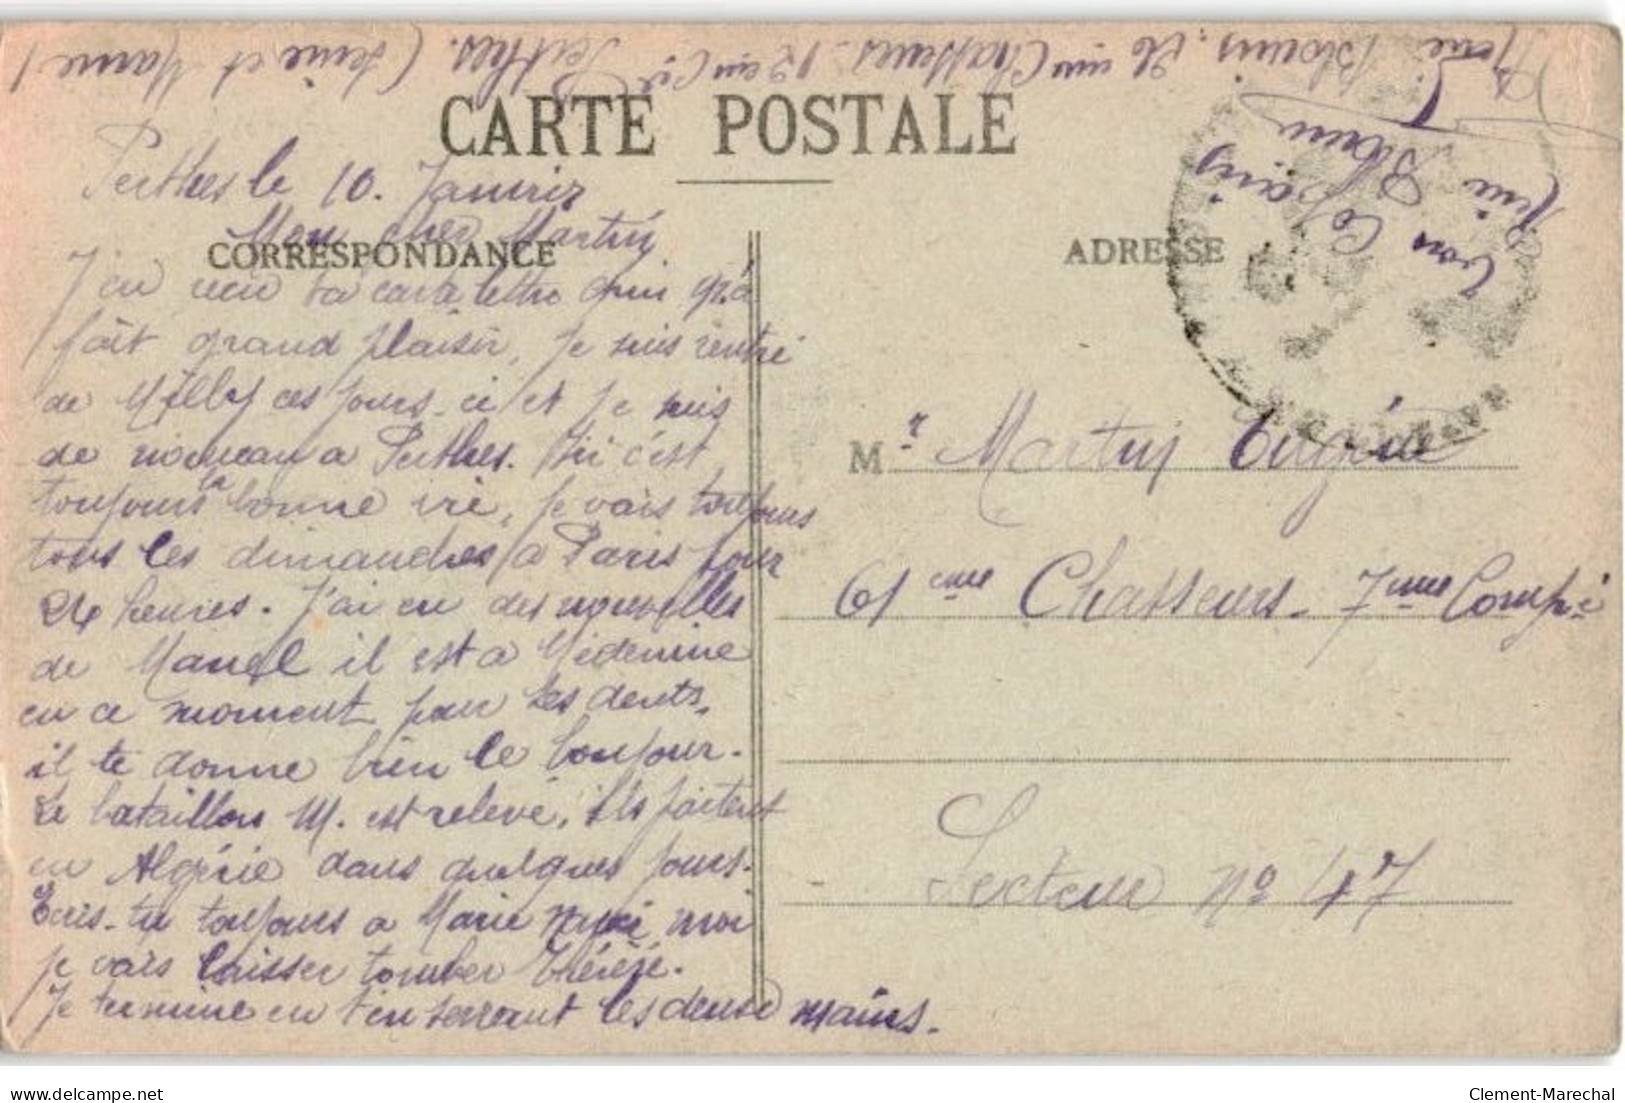 René Blouin. 26 eme Chasseurs. 12 em Cie Perthes. (Seine et Marne)
CARTE POSTALE
Perthes le 10. Janvier
Mon cher Martin
CORRESPONDANCE
J'ai reçu ta carte lettre qui m'a
fait grand plaisir, je suis rentré
de Milly ces jours-ci et je suis
de nouveau a Perthes. Ici c'est
toujours la bonne vie, je vais toujours
tous les dimanches a Paris pour
24 heures. J'ai eu des nouvelles
de Marcel il est a Médenine
en ce moment pour les dents,
il te donne bien le bonjour.
Le bataillon M. est relevé, ils partent
en Algérie dans quelques jours.
Ecris-tu toujours a Marie moi
je vais laisser tomber Thérèse.
Je termine en t'en serrant les deux mains.
ADRESSE
ton Copain
René Blouin
Mr Martin Eugène
61 eme Chasseurs - 7 eme Compie
Secteur No 47
Clement-Marechal
www.delcampe.net